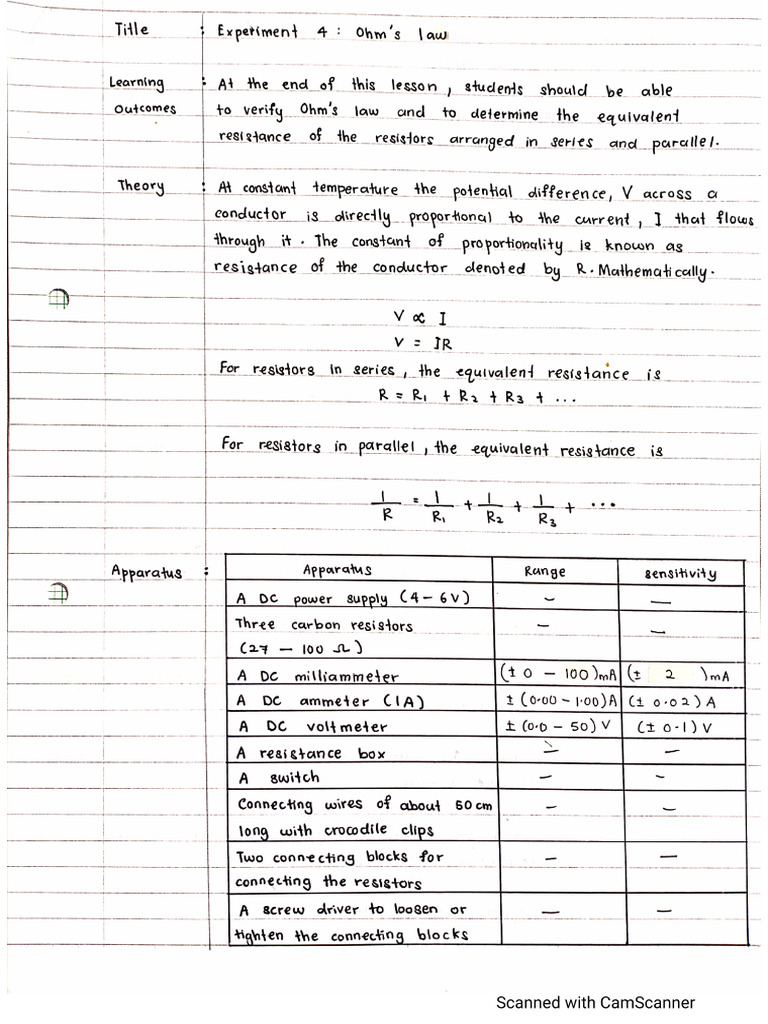 Title : Experiment 4 : Ohm's law
Learning : At the end of this lesson, students should be able
Outcomes to verify Ohm's law and to determine the equivalent
resistance of the resistors arranged in series and parallel.
Theory : At constant temperature the potential difference, V across a
conductor is directly proportional to the current, I that flows
through it. The constant of proportionality is known as
resistance of the conductor denoted by R. Mathematically.
V ∝ I
V = IR
For resistors in series, the equivalent resistance is
R = R₁ + R₂ + R₃ + ...
For resistors in parallel, the equivalent resistance is
1/R = 1/R₁ + 1/R₂ + 1/R₃ + ...
Apparatus : Apparatus Range sensitivity
A DC power supply (4 - 6V) — —
Three carbon resistors — —
(27 — 100 Ω)
A DC milliammeter (± 0 - 100)mA (± 2 )mA
A DC ammeter (1A) ± (0.00 - 1.00)A (± 0.02) A
A DC voltmeter ± (0.0 - 50) V (± 0.1) V
A resistance box — —
A switch — —
Connecting wires of about 50 cm — —
long with crocodile clips
Two connecting blocks for — —
connecting the resistors
A screw driver to loosen or — —
tighten the connecting blocks
Scanned with CamScanner